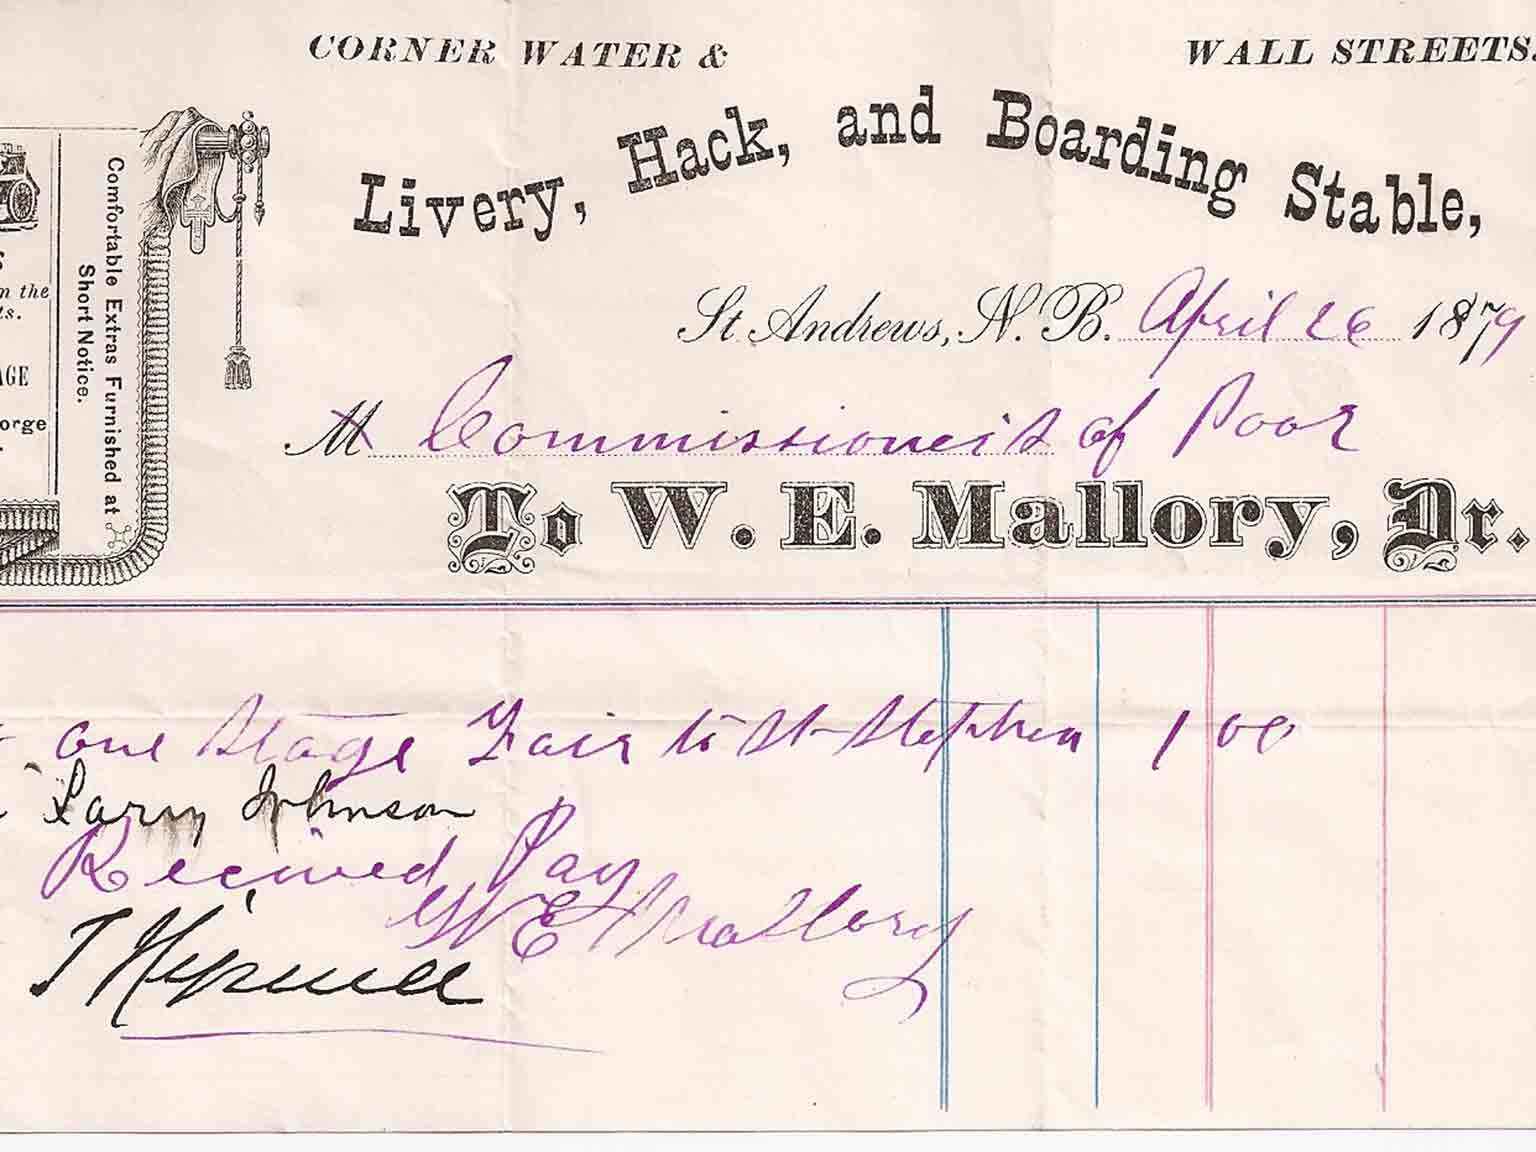 CORNER WATER & WALL STREETS.
Livery, Hack, and Boarding Stable,
St. Andrews, N. B. April 26 1879
M Commissioneis of Poor
To W. E. Mallory, Dr.
Comfortable Extras Furnished at
Short Notice.
n the
ts.
AGE
orge
one Stage Fair to St Stephen 1 00
Larry Johnson
Received Pay
W E Mallory